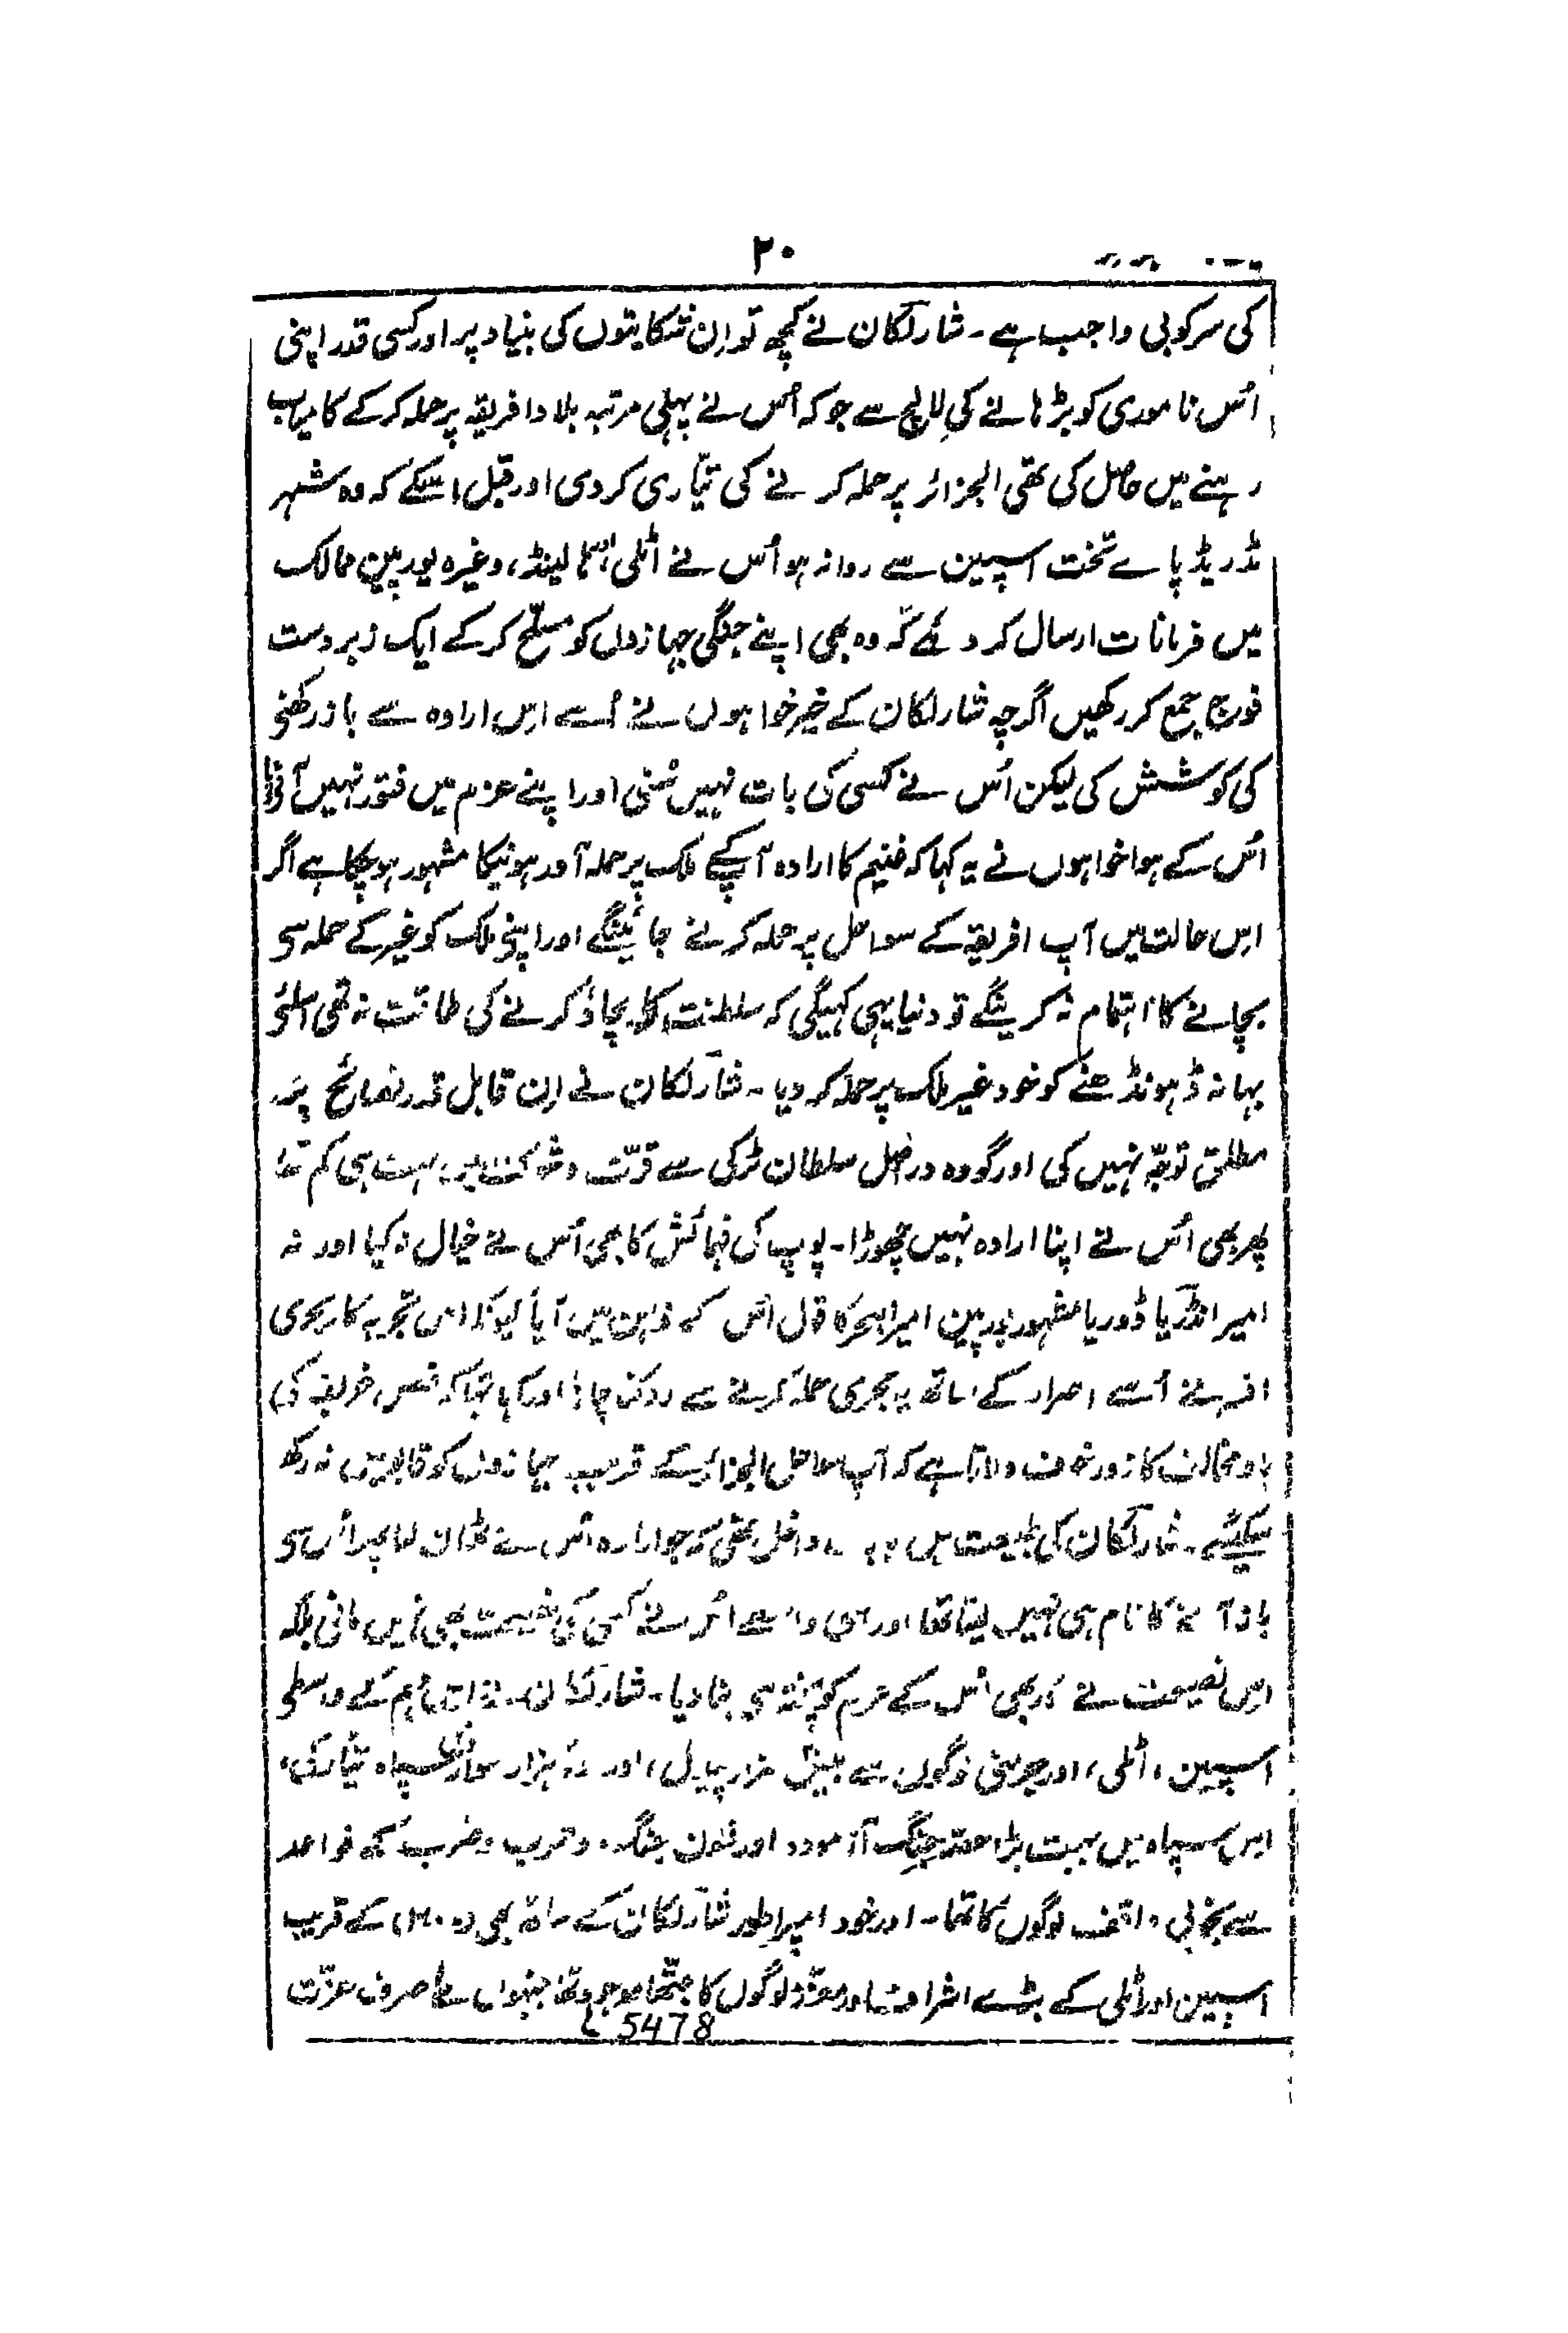 ۲۰
کی سرکوبی واجب ہے ۔ شارلکان نے کچھ تو اِن شکایتوں کی بنیاد پر اور کسی قدر اپنی
اُس ناموری کو بڑہانے کی لالچ سے جو کہ اُس نے پہلی مرتبہ بلاد افریقہ پر حملہ کرکے کامیاب
رہنے میں حاصل کی تھی الجزائر پر حملہ کرنے کی تیّاری کردی اور قبل اسکے کہ وہ شہر
مڈریڈ پاے تخت اسپین سے روانہ ہو اُس نے اٹلی، لینڈ، وغیرہ یورپین ممالک
میں فرمانات ارسال کر دئے کہ وہ بھی اپنے جنگی جہازوں کو مسلّح کرکے ایک زبردست
فوج جمع کر رکھیں اگرچہ شارلکان کے خیرخواہوں نے اُسے اِس ارادہ سے باز رکھنی
کی کوشش کی لیکن اُس نے کسی کی بات نہیں سُنی اور اپنے عزم میں فتور نہیں آنے دیا
اُس کے ہواخواہوں نے یہ کہا کہ غنیم کا ارادہ آپکے ملک پر حملہ آور ہونیکا مشہور ہوچکا ہے اگر
اِس حالت میں آپ افریقہ کے سواحل پر حملہ کرنے جائینگے اور اپنی ملک کو غیر کے حملہ سی
بچانے کا اہتمام نہ کرینگے تو دنیا یہی کہیگی کہ سلطنت کا بچاؤ کرنے کی طاقت نہ تھی اسلئے
بہانہ ڈہونڈھنے کو خود غیر ملک پر حملہ کر دیا ۔ شارلکان نے اِن قابل قدر نصائح پر
مطلق توجّہ نہیں کی اور گو وہ دراصل سلطان ٹرکی سے قوّت و شوکت میں بہت ہی کم تھا
پھر بھی اُس نے اپنا ارادہ نہیں چھوڑا ۔ پوپ کی فہمائش کا بھی اُس نے خیال نہ کیا اور نہ
امیر انڈریا ڈوریا مشہور یورپین امیرالبحر کا قول اُس کے ذہن میں آیا کیونکہ اس تجربہ کار بحری
افسر نے اُسے اصرار کے ساتھ یہ بحری حملہ کرنے سے روکنا چاہا اور کہا تھا کہ فصل خریف کی
باد مخالف کا زور خوف دلاتا ہے کہ آپ سواحل الجزائر کے قریب جہازوں کو قابو میں نہ رکھ
سکینگے ۔ شارلکان کی طبیعت میں داخل تھی کہ جو ارادہ اُس نے ٹھان لیا پھر اُس سی
باز آنے کا نام ہی نہیں لیتا تھا اور اسی واسطے اُس نے کسی کی نصیحت بھی نہیں مانی بلکہ
اِس نصیحت نے اور بھی اُس کے عزم کو پختہ بنا دیا ۔ شارلکان نے اِس مہم کے واسطی
اسپین، اٹلی، اور جرمنی لوگوں سے بیس ہزار پیدل، اور ہزار سوار سپاہ تیّار کی،
اِس سپاہ میں بہت بڑا حصّہ جنگ آزمودہ اور فنون جنگ و حرب و ضرب کے قواعد
سے بخوبی واقف لوگوں کا تھا ۔ اور خود امپراطور شارلکان کے ساتھ بھی کے قریب
اسپین اور اٹلی کے بڑے اشراف اور معزّز لوگوں کا جتھا موجود تھا جنہوں نے صرف عزّت
5478